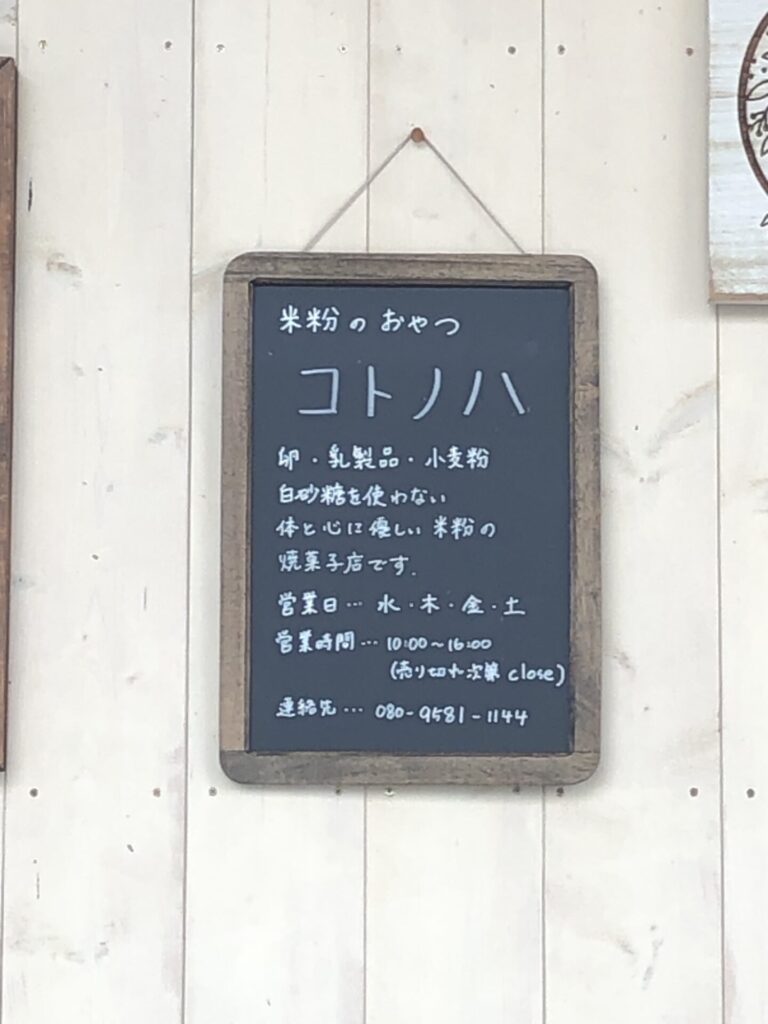 米粉のおやつ
コトノハ
卵・乳製品・小麦粉
白砂糖を使わない
体と心に優しい米粉の
焼菓子店です.
営業日…水・木・金・土
営業時間…10:00~16:00
(売り切れ次第close)
連絡先…080-9581-1144